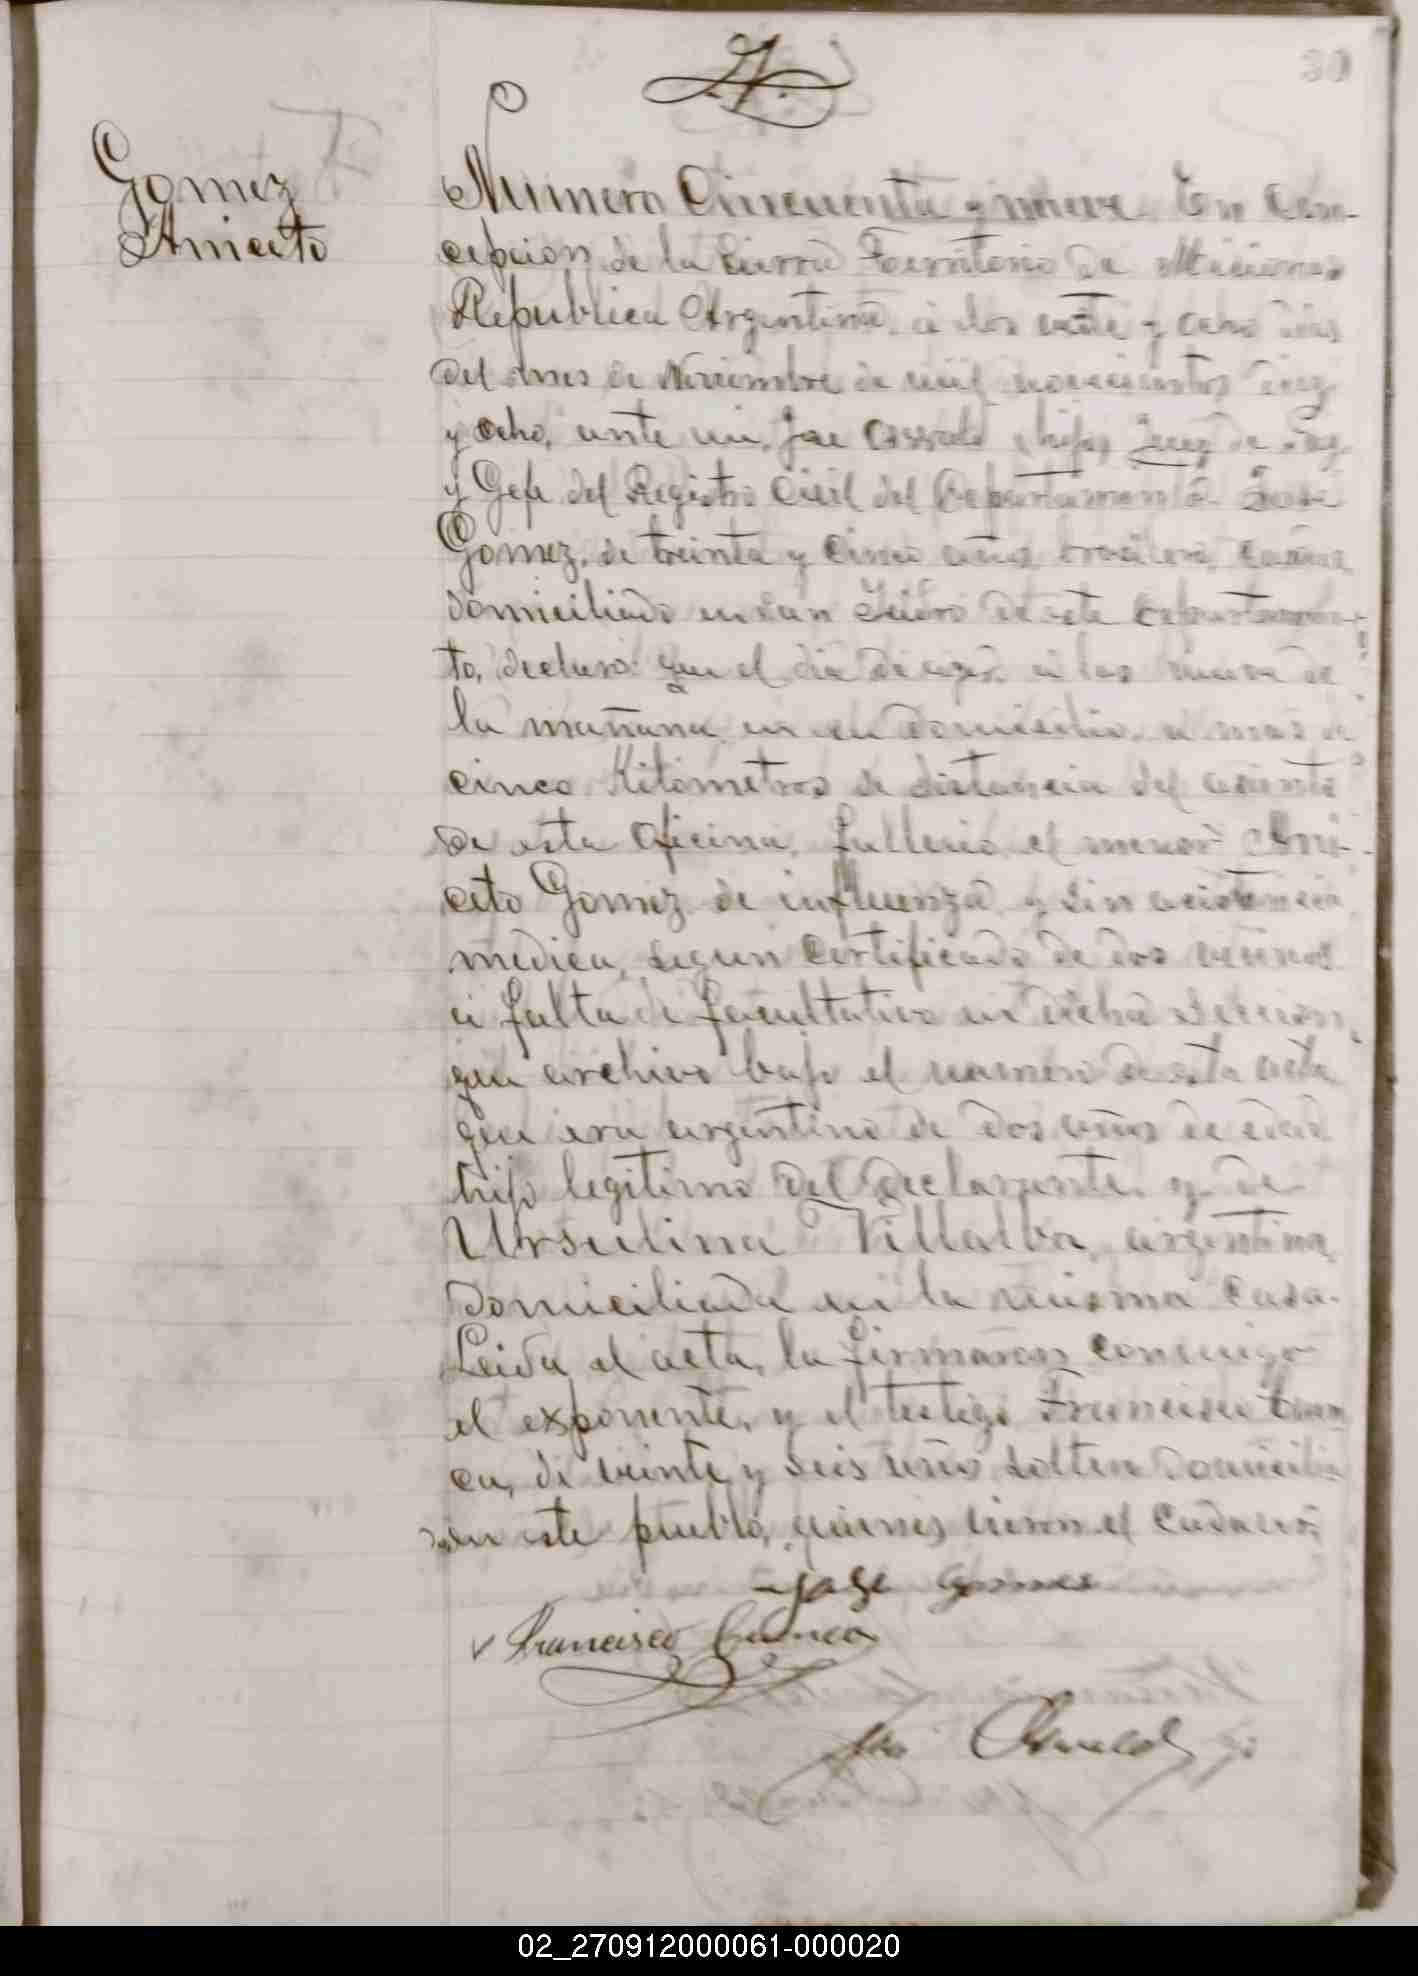 30
Gomez
Aniceto
Numero Cincuenta y nueve. En Con-
cepcion de la Sierra Territorio de Misiones
Republica Argentina, á los veinte y ocho dias
del mes de Noviembre de mil novecientos diez
y ocho, ante mi, José Osvaldo (hijo) Juez de Paz
y Gefe del Registro Civil del Departamento José
Gomez, de treinta y cinco años, brasilero, casado
domiciliado en San Isidro de este Departamen-
to, declaró: que el dia de ayer á las nueve de
la mañana en su domicilio, á mas de
cinco Kilómetros de distancia del asiento
de esta Oficina, falleció el menor Ani-
ceto Gomez de influenza y sin asistencia
medica, segun certificado de dos vecinos
á falta de facultativo en dicha seccion,
que archivo bajo el numero de esta acta
que era argentino de dos años de edad
hijo legitimo del declarante y de
Ursulina Villalba, argentina,
domiciliada en la misma casa.
Leida el acta, la firmaron conmigo
el exponente, y el testigo Francisco Cuen
ca, de veinte y seis años, soltero domicilia
do en este pueblo, quienes vieron el cadaver,
Jose Gomes
Francisco Cuenca
José Osvaldo
02_270912000061-000020